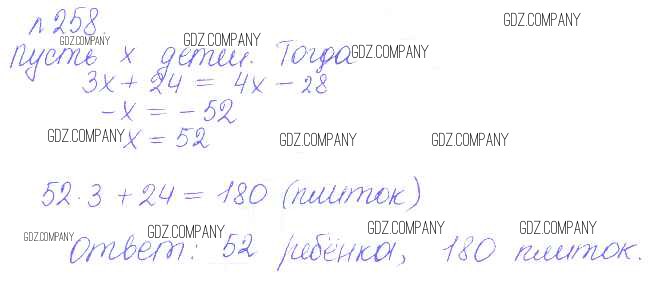 GDZ.COMPANY
№258
GDZ.COMPANY GDZ.COMPANY
Пусть x детей. Тогда GDZ.COMPANY
3x + 24 = 4x - 28
-x = -52
GDZ.COMPANY x = 52 GDZ.COMPANY GDZ.COMPANY
52·3 + 24 = 180 (плиток)
GDZ.COMPANY GDZ.COMPANY GDZ.COMPANY GDZ.COMPANY
Ответ: 52 ребёнка, 180 плиток.